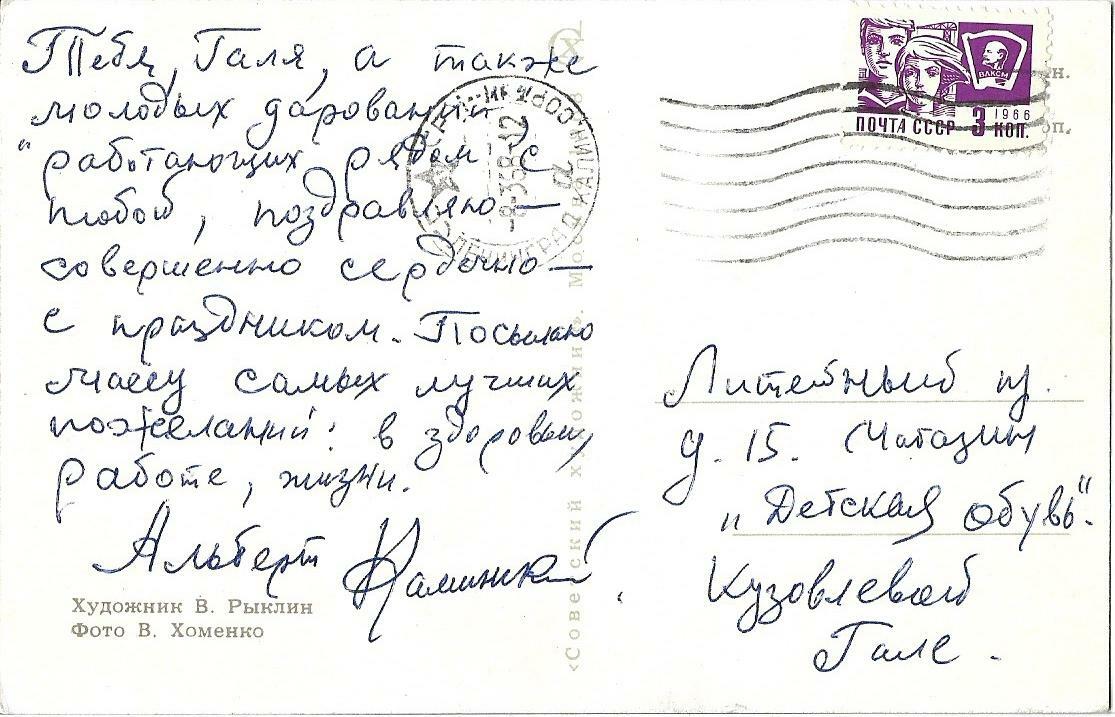 Тебя, Галя, а также
молодых дарований
работающих рядом с
тобой, поздравляю —
совершенно сердечно —
с праздником. Посылаю
массу самых лучших
пожеланий: в здоровьи,
работе, жизни.
Альберт Каминский
Художник В. Рыклин
Фото В. Хоменко
«Советский художник». Мос
ЛЕНИНГРАД
-8-368-12
ВЛКСМ
1966
ПОЧТА СССР 3 КОП.
Литейный пр.
д. 15. Магазин
„Детская обувь".
Кузовлевой
Гале.